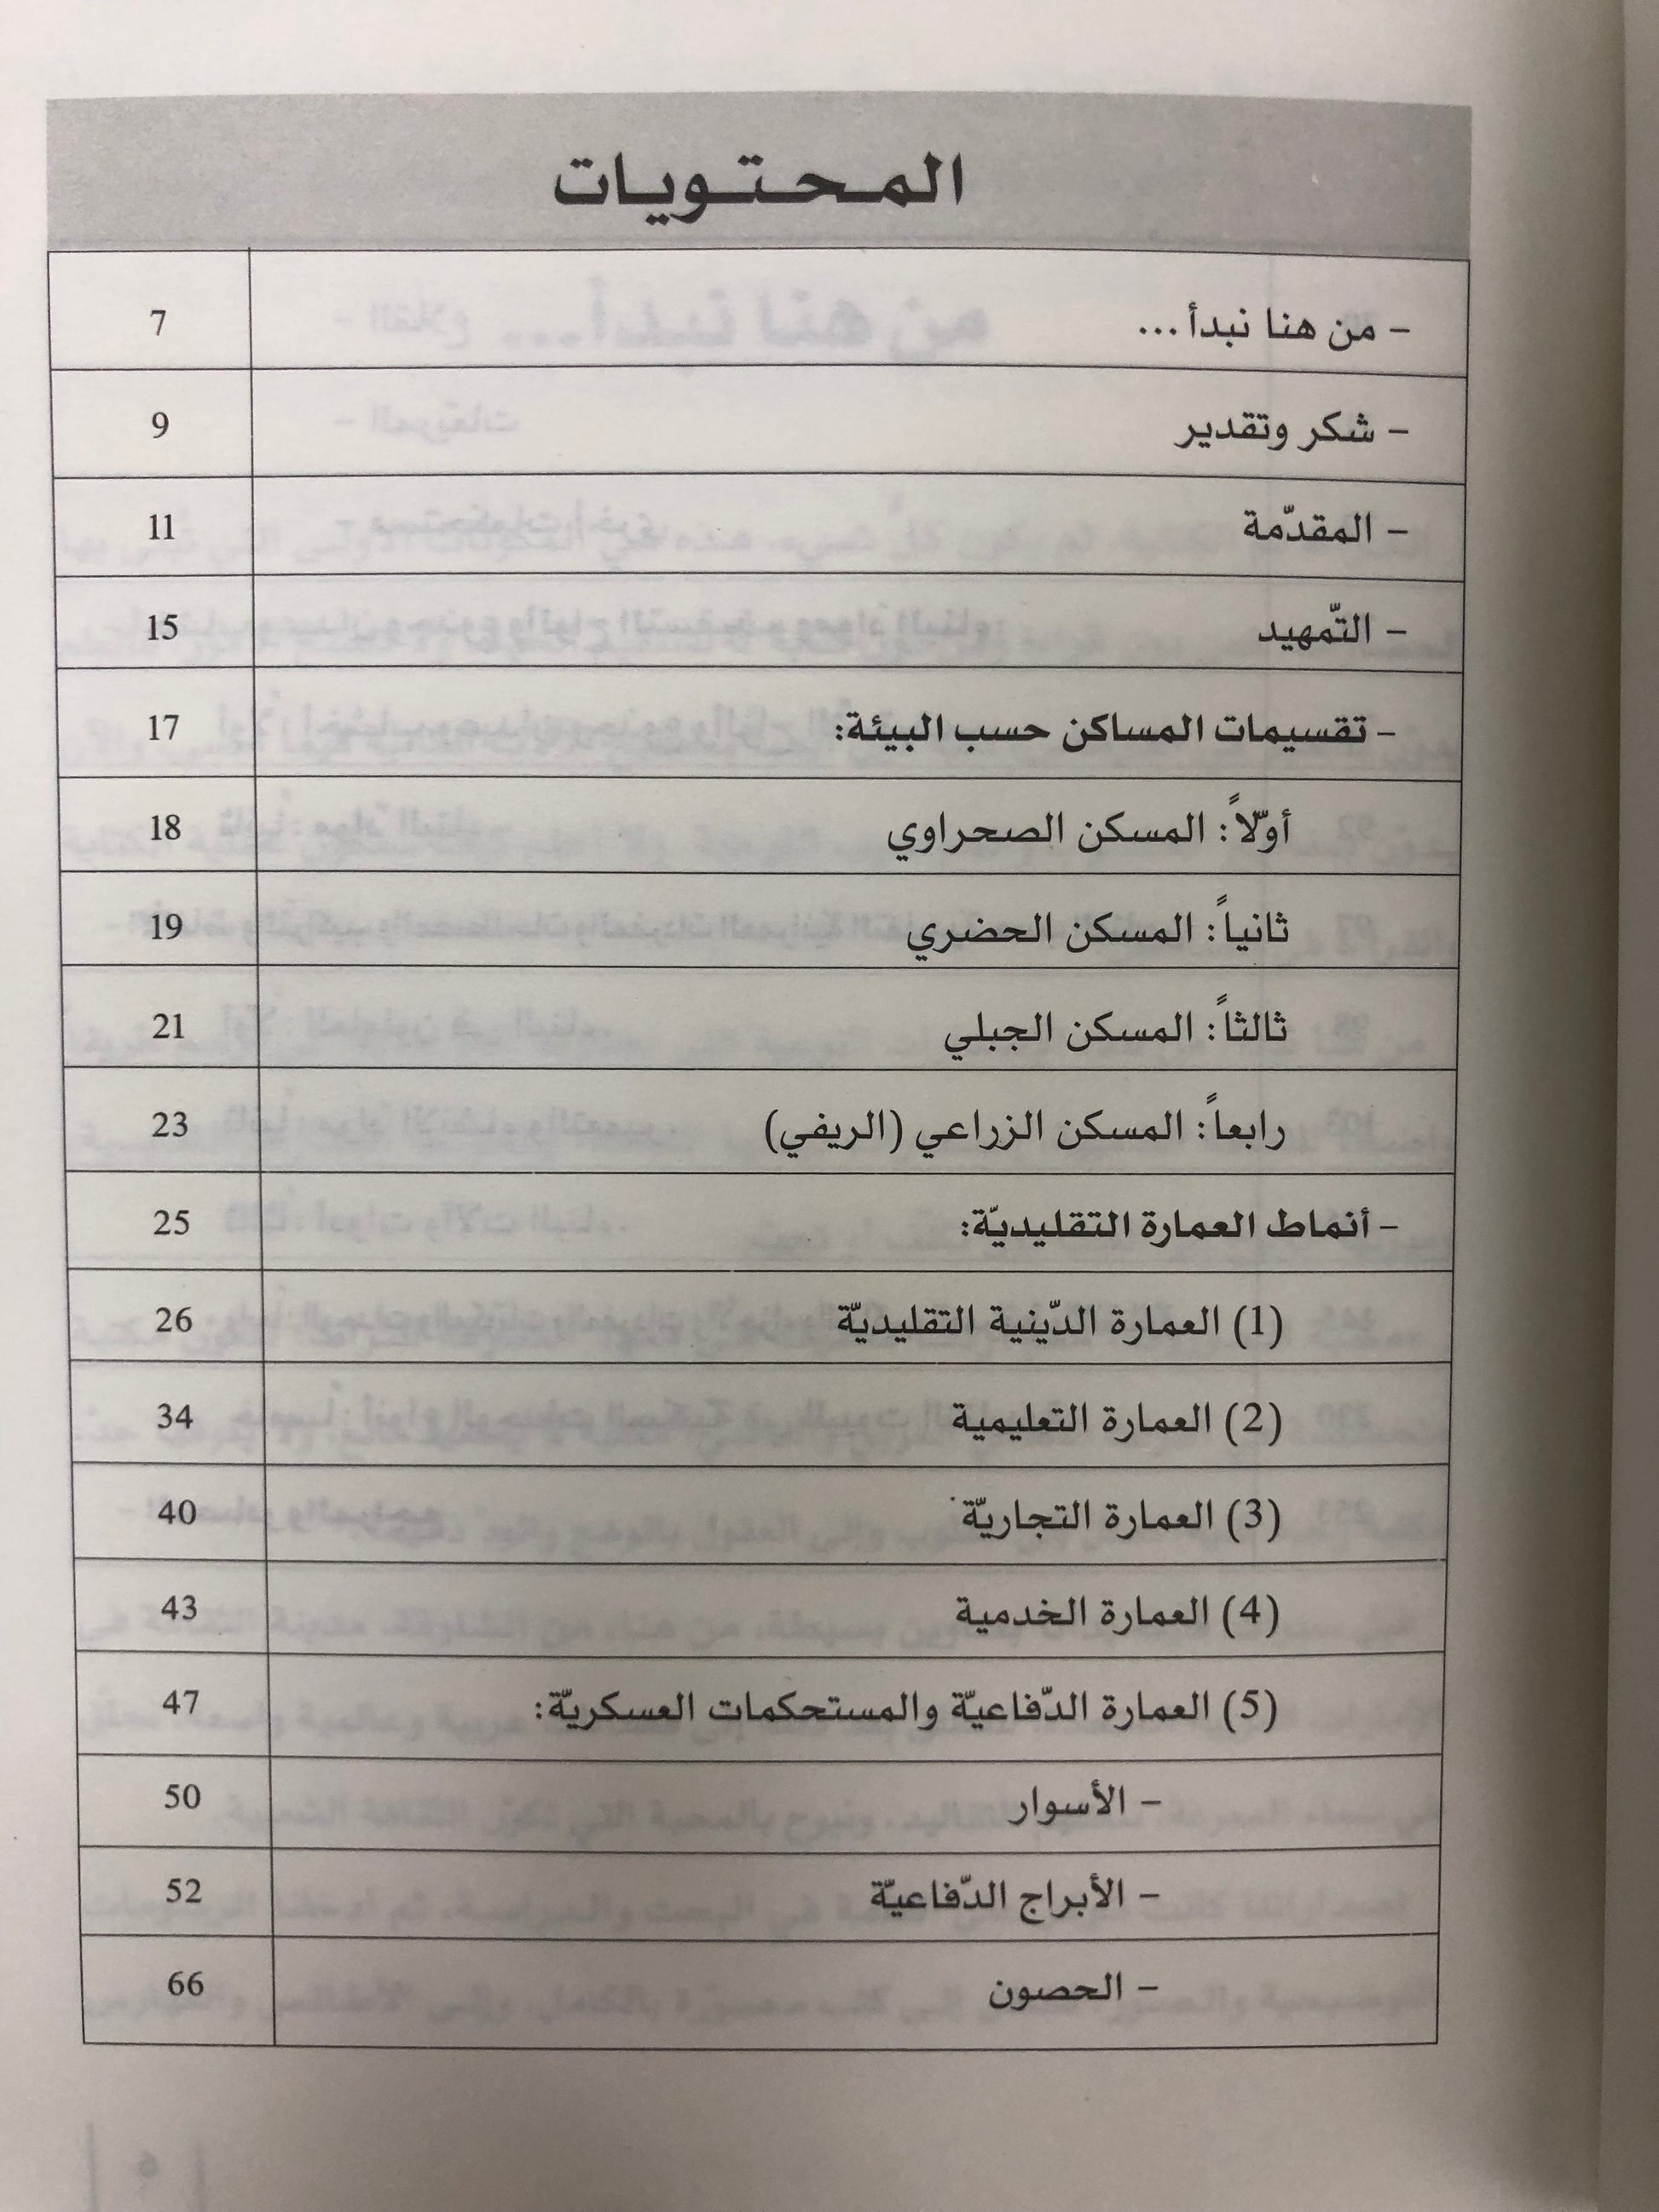 المحتويات
– من هنا نبدأ ... 7
– شكر وتقدير 9
– المقدّمة 11
– التّمهيد 15
– تقسيمات المساكن حسب البيئة: 17
أوّلاً: المسكن الصحراوي 18
ثانياً: المسكن الحضري 19
ثالثاً: المسكن الجبلي 21
رابعاً: المسكن الزراعي (الريفي) 23
– أنماط العمارة التقليديّة: 25
(1) العمارة الدّينية التقليديّة 26
(2) العمارة التعليمية 34
(3) العمارة التجاريّة 40
(4) العمارة الخدمية 43
(5) العمارة الدّفاعيّة والمستحكمات العسكريّة: 47
– الأسوار 50
– الأبراج الدّفاعيّة 52
– الحصون 66